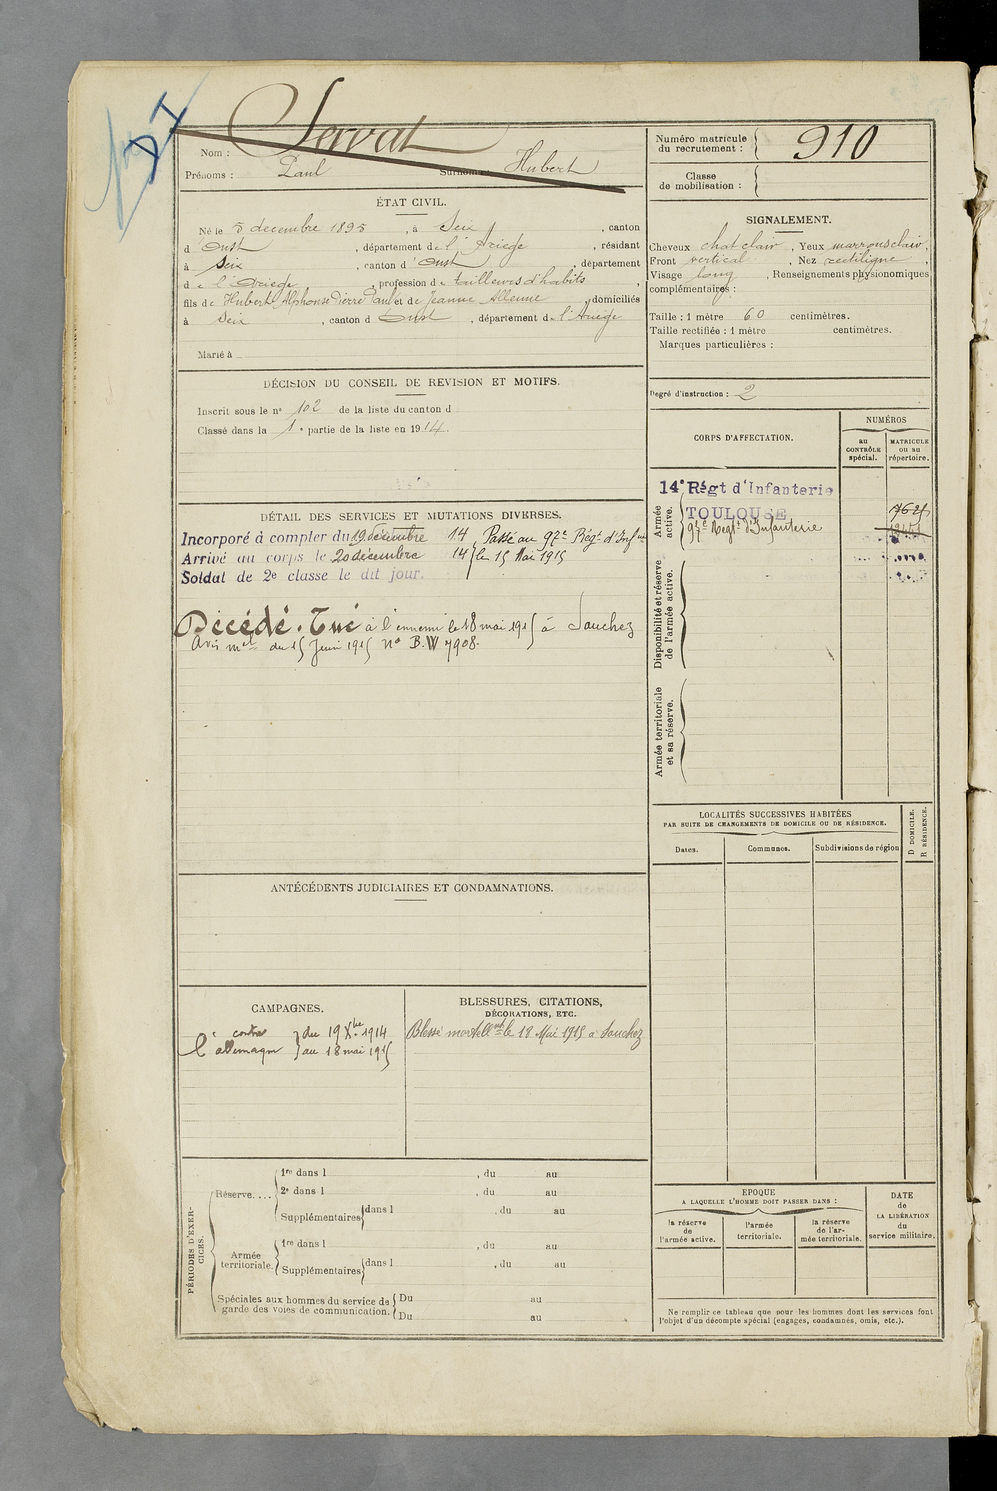 Servat
Nom :
Prénoms : Paul Surnoms : Hubert
Numéro matricule
du recrutement : 910
Classe
de mobilisation :
ÉTAT CIVIL.
Né le 5 decembre 1895, à Seix, canton
d'Oust, département de l'Ariege, résidant
à Seix, canton d'Oust, département
de l'Ariege, profession de tailleurs d'habits
fils de Hubert Alphonse Pierre Paul et de Jeanne, domiciliés
à Seix, canton d Oust, département de l'Ariege
Marié à
SIGNALEMENT.
Cheveux chat clair, Yeux marrons clair,
Front vertical, Nez rectiligne,
Visage long, Renseignements physionomiques
complémentaires :
Taille : 1 mètre 60 centimètres.
Taille rectifiée : 1 mètre centimètres.
Marques particulières :
Degré d'instruction : 2
DÉCISION DU CONSEIL DE REVISION ET MOTIFS.
Inscrit sous le n° 102 de la liste du canton d
Classé dans la 1e partie de la liste en 1914.
CORPS D'AFFECTATION.
NUMÉROS
au
CONTRÔLE
spécial.
MATRICULE
ou au
répertoire.
Armée
active.
14e Régt d'Infanterie
TOULOUSE
97e Regt d'Infanterie
Disponibilité et réserve
de l'armée active.
Armée territoriale
et sa réserve.
DÉTAIL DES SERVICES ET MUTATIONS DIVERSES.
Incorporé à compter du 19 décembre 14 Passé au 97e Régt d'Infrie
Arrivé au corps le 20 décembre 14 le 15 Mai 1915
Soldat de 2e classe le dit jour.
Décédé. Tué à l'ennemi le 18 mai 1915 à Souchez
Avis mel du 15 Juin 1915 n° B.W 7908.
LOCALITÉS SUCCESSIVES HABITÉES
PAR SUITE DE CHANGEMENTS DE DOMICILE OU DE RÉSIDENCE.
Dates.
Communes.
Subdivisions de région
D DOMICILE.
R RÉSIDENCE.
ANTÉCÉDENTS JUDICIAIRES ET CONDAMNATIONS.
CAMPAGNES.
contre du 19 Xbre 1914
l'allemagne au 18 mai 1915
BLESSURES, CITATIONS,
DÉCORATIONS, ETC.
Blessé mortellmt le 18 Mai 1915 à Souchez
PÉRIODES D'EXER-
CICES.
Réserve....
1re dans l , du au
2e dans l , du au
Supplémentaires dans l , du au
Armée
territoriale.
1re dans l , du au
Supplémentaires dans l , du au
Spéciales aux hommes du service de
garde des voies de communication.
Du au
Du au
EPOQUE
A LAQUELLE L'HOMME DOIT PASSER DANS :
la réserve
de
l'armée active.
l'armée
territoriale.
la réserve
de l'ar-
mée territoriale.
DATE
de
LA LIBÉRATION
du
service militaire.
Ne remplir ce tableau que pour les hommes dont les services font
l'objet d'un décompte spécial (engagés, condamnés, omis, etc.).